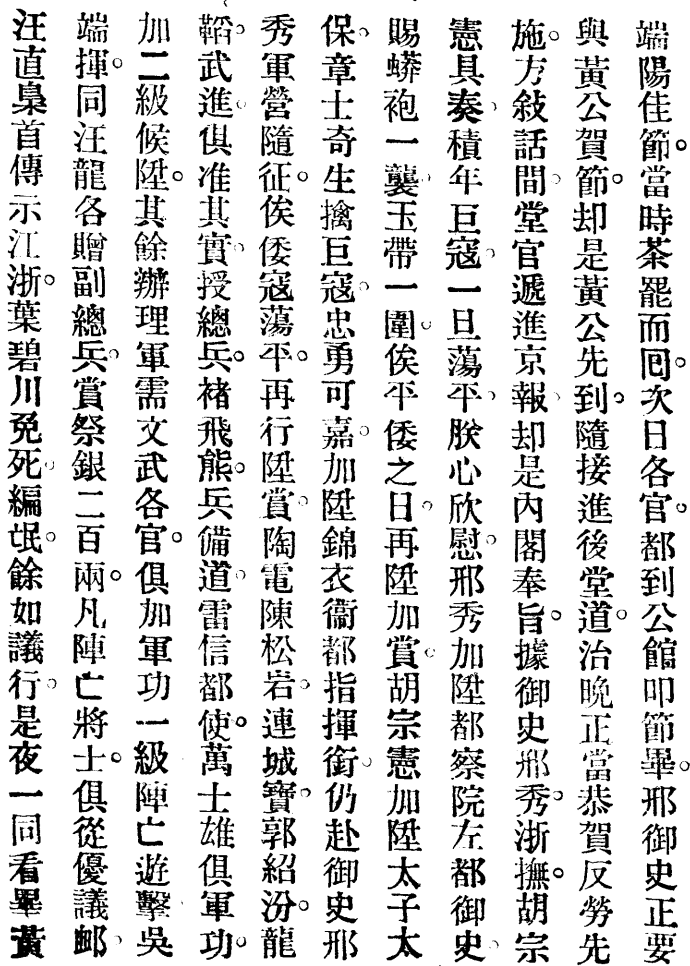 端陽佳節。當時茶罷而囘。次日各官。都到公館叩節畢。邢御史正要
與黃公賀節。却是黃公先到。隨接進後堂道。治晩正當恭賀反勞先
施。方敍話間。堂官遞進京報。却是內閣奉旨。據御史邢秀。浙撫。胡宗
憲具奏。積年巨寇。一旦蕩平。朕心欣慰。邢秀加陞都察院左都御史。
賜蟒袍一襲。玉帶一圍。俟平倭之日。再陞加賞。胡宗憲加陞太子太
保。章士奇生擒巨寇。忠勇可嘉。加陞錦衣衞都指揮銜。仍赴御史邢
秀軍營隨征。俟倭寇蕩平。再行陞賞。陶電陳松岩。連城寶。郭紹汾。龍
韜。武進。俱准其實。授總兵。褚飛熊。兵備道。雷信都使。萬士雄俱軍功。
加二級候陞。其餘辦理軍需文武各官。俱加軍功一級陣亡遊擊吳
端揮。同汪龍各贈副總兵。賞祭銀二百兩。凡陣亡將士。俱從優議䘏。
汪直梟首傳示江浙。葉碧川免死。編氓。餘如議行。是夜一同看畢黃